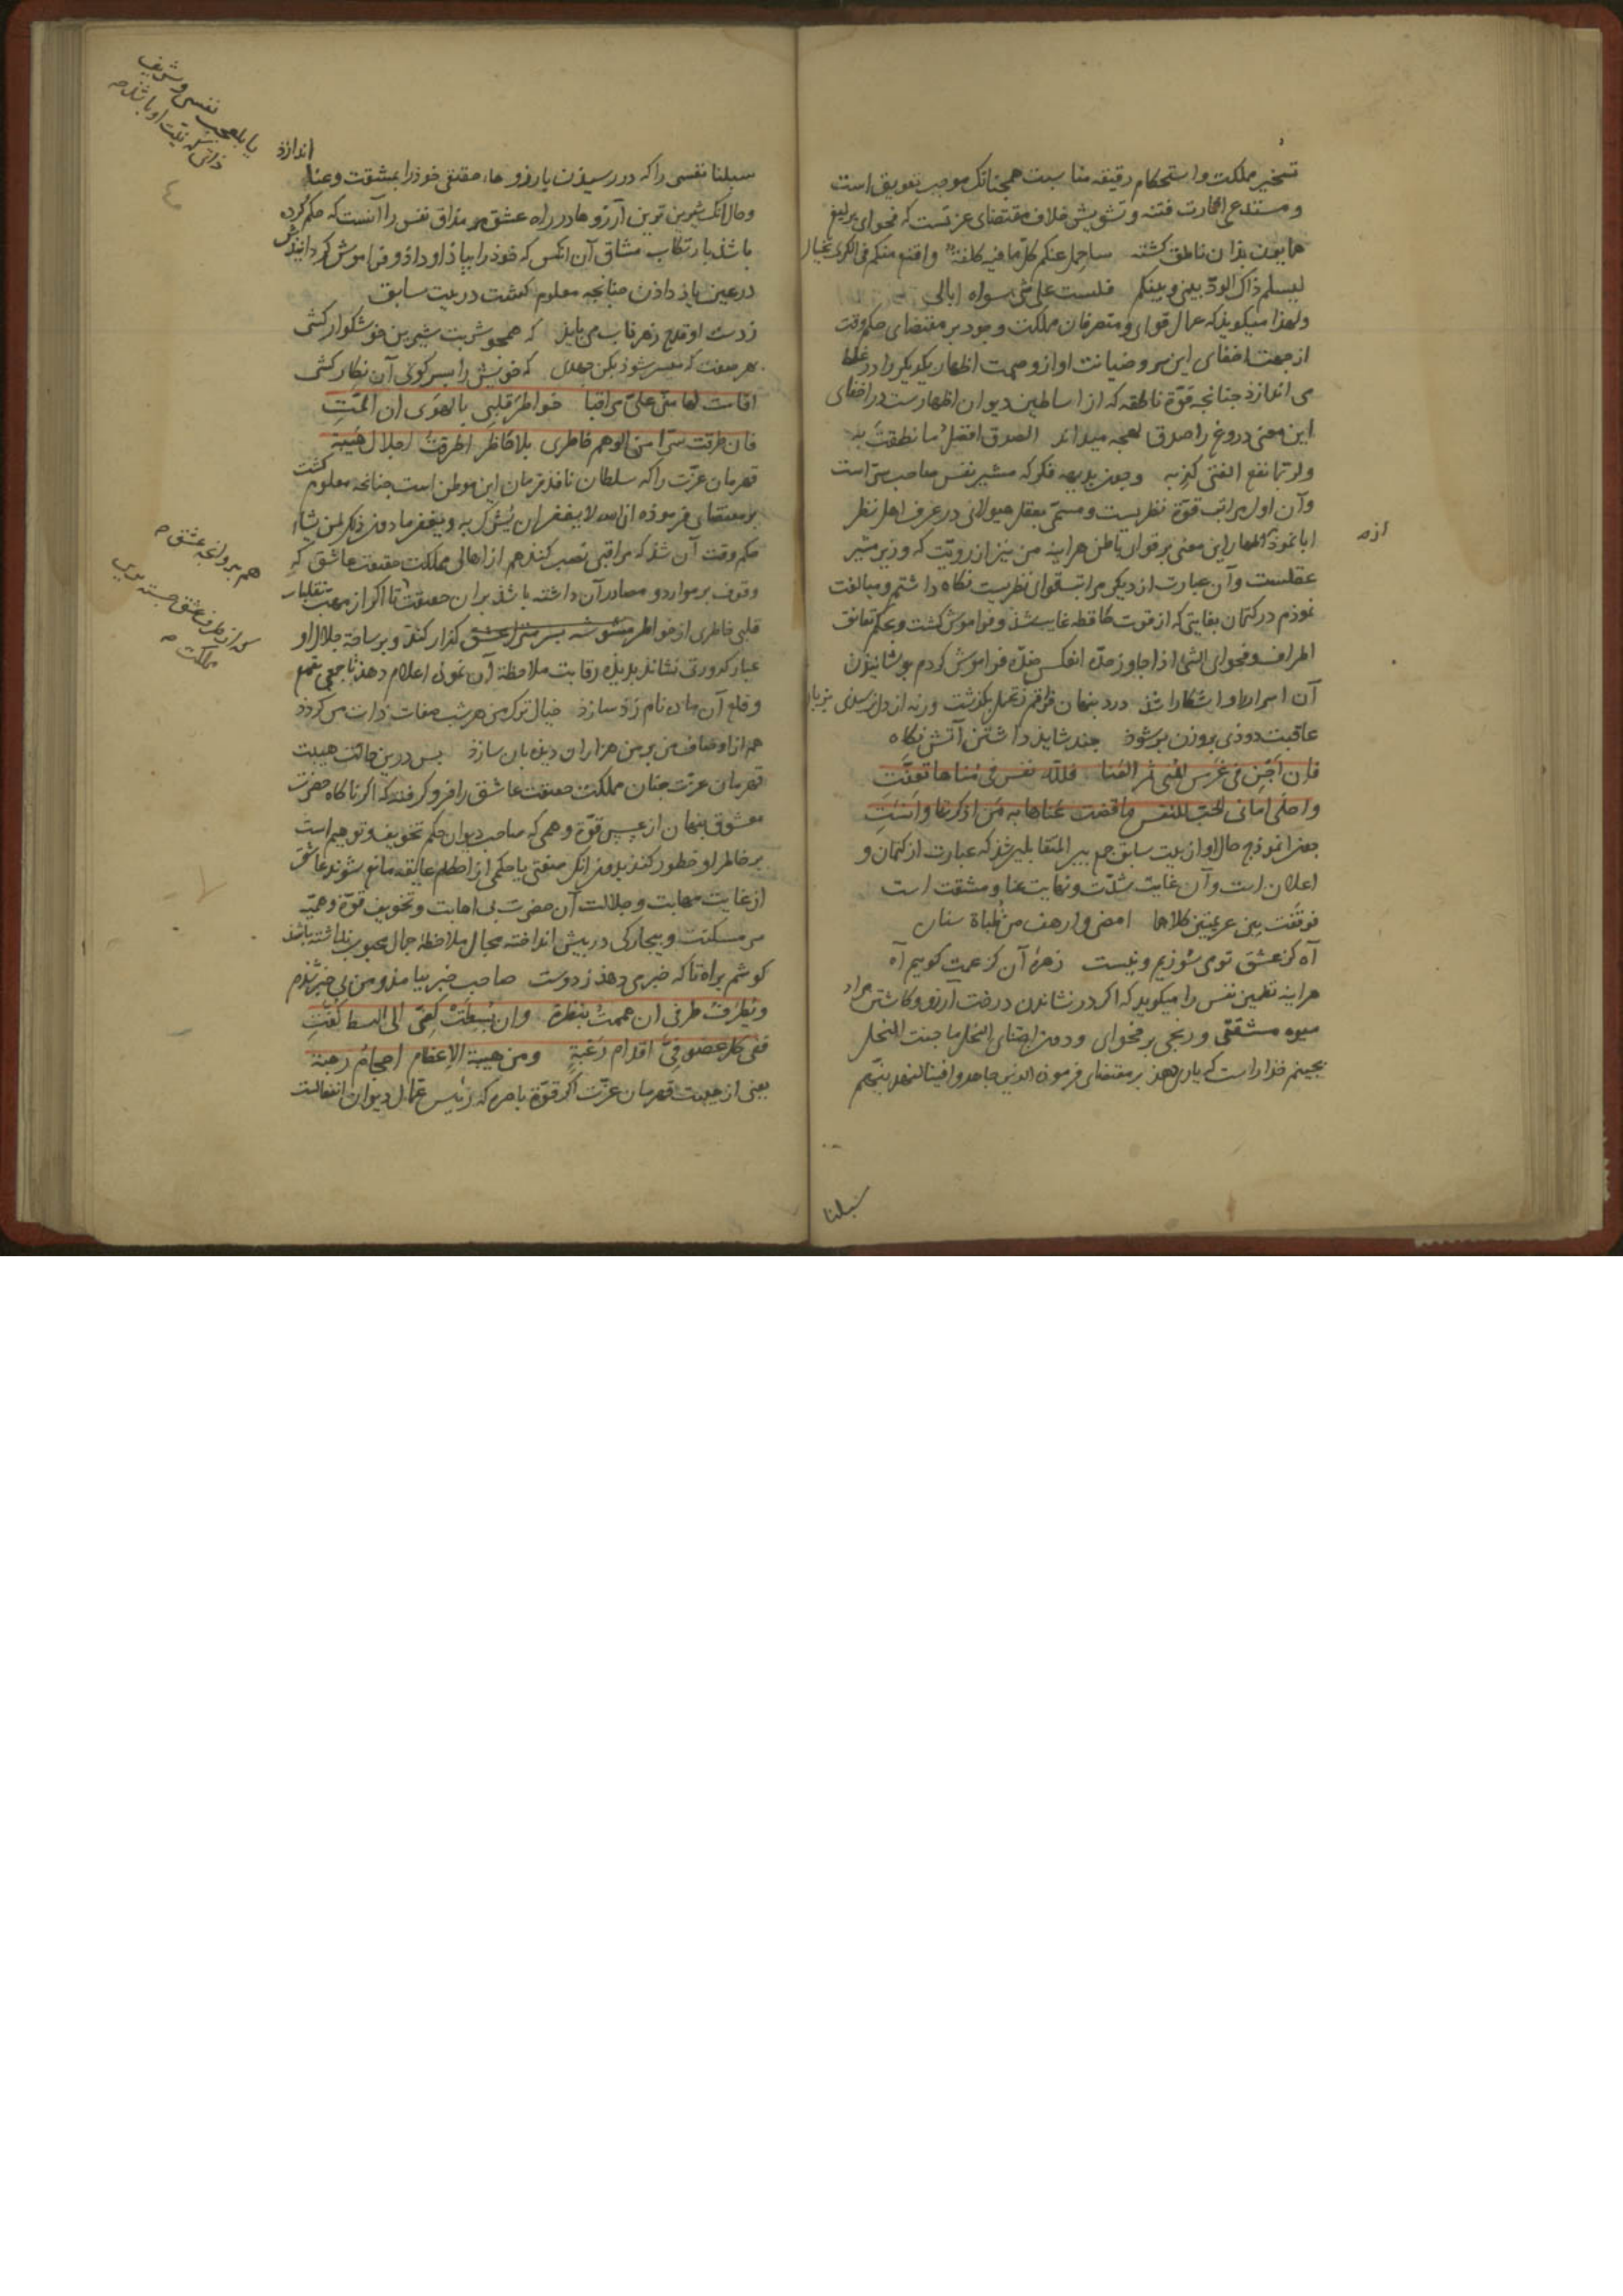 تسخیر مملکت و استحکام دقیقه مناسبت همچنانک موجب تعویق است
و مستدعی اثارت فتنه و تشویش خلاف مقتضای عزتست که فحوای یرلیغ
همایون بذان ناطق کشته ساحمل عنکم کل ما فیه کلفة واقنع منکم فی الکری بخیال
لیسلم ذاک الود بینی و بینکم فلست علی شی سواه ابالی
ولهذا میکوید که عمال قوای و متصرفان مملکت وجود بر مقتضای حکم وقت
از جهت اخفای این سر و ضیانت او از وصمت اظهار یکدیکر را در غلط
می اندازد جنانجه قوة ناطقه که از اساطین دیوان اظهارست در اخفای
این معنی دروغ را صدق لهجه میداند الصدق افضل ما نطقت به
ولربما نفع الفتی کذبه وجون بدیهه فکر که مشیر نفس صاحب سر است
وآن اول مراتب قوة نظریست و مسمی بعقل هیولانی در عرف اهل نظر
ابا نموذ اظهار این معنی بر قوای باطن هراینه من نیز از رویت که وزیر مشیر
عقلست وآن عبارت از دیکر مراتب قوای نظریست نکاه داشتم و مبالغت
نموذم در کتمان بغایتی که از قوت حافظه غایب شذ و فراموش کشت و بحکم تعانق
اطراف و فحوای الشی اذا جاوز حده انعکس ضده فراموش کردم بوشانیذن
آن اسرار و اشکارا شذ درد بنهان فراقم ز تحمل بکذشت ورنه از دل نرسیدی بزبان
عاقبت دوذی بروزن برشوذ جند شاید داشتن آتش نکاه
فان اجن من غرس المنی ثمر العنا فلله نفس فی مناها تعنت
واحلی امانی الحب للنفس ما قضت عناها به من اذکرتها وانست
جون انموذج حال او از بیت سابق جمع بین المتقابلین شذ که عبارت از کتمان و
اعلان است وآن غایت شدت و نهایت عنا و مشقت است
فوقفت بین عزیمتین کلاهما امضی و ارهف من ظباة سنان
آه کز عشق تو می سوزیم و نیست زهره آن کز غمت کوییم آه
هراینه تطمین نفس را میکوید که اکر در نشاندن درخت آرزو و کاشتن مراد
میوه مشقتی و رنجی بر فحوای و دون اجتنای النحل ما جنت النحل
بجینم خذا راست که یاری دهذ بر مقتضای فرموده الذین جاهدوا فینا لنهدینهم
ازه
سبلنا
سبلنا نفسی را که در رسیدن بارزوها، حقیقی خوذ را بمشقت و عنا
اندازذ
وحال انک شیرین ترین آرزوها در راه عشق در مذاق نفس را آنست که حکم کرده
باشذ بارتکاب مشاق آن انکس که خوذ را بیاذ او داذ و فراموش کردانیذش
در عین یاذ داذن جنانجه معلوم کشت در بیت سابق
ز دست او قدح زهر ناب می باید که همجو شربت شیرین خوشکوار کشی
بهر صفت که میسر شوذ بکن جهدی که خویش را بسر کوی آن نکار کشی
اقامت لها منی علی مراقبا خواطر قلبی بالهوی ان المت
فان طرقت سرا من الوهم خاطری بلا حاظر اطرقت اجلال هیبة
قهرمان عزت را که سلطان نافذ فرمان این موطن است جنانجه معلوم کشت
بر مقتضای فرموده ان الله لا یغفر ان یشرک به و یغفر ما دون ذلک لمن یشاء
حکم وقت آن شذ که مراقبی نصب کند هم از اهالی مملکت حقیقت عاشق که
وقوف بر موارد و مصادر آن داشته باشذ بران حقیقت تا اکر از مهب تقلبات
قلبی خاطری از خواطر مشوشه بسر متر عشق کذار کند و بر ساحة جلال او
غبار کدورتی نشاند بدیده رقابت ملاحظة آن نموده اعلام دهذ تا جمعی بقمع
وقلع آن ماده نام زد سازذ خیال ترک من هر شب صفات ذات من کردد
هم از اوصاف من بر من هزاران دیده بان سازذ بس درین حالت هیبت
قهرمان عزت جنان مملکت حقیقت عاشق را فرو کرفته که اکر ناکاه حضرت
معشوق بنهان از عسس قوة وهمی که صاحب دیوان حکم تخویف و توهیم است
بر خاطر او خطور کند بدون انک صفتی یا حکمی از احکام عایقه مانع شوند عاشق
از غایت مهابت و جلالت آن حضرت بی اهابت و تخویف قوة وهمیه
سر مسکنت و بیجارکی در بیش انداخته مجال ملاحظه جمال محبوب نداشته باشذ
کوشم براه تا که خبر می دهذ ز دوست صاحب خبر بیامذ و من بی خبر شذم
ویطرف طرفی ان هممت بنظرة وان بسطت کفی الی البسط کفت
ففی کل عضو فی اقدام رغبة ومن هیبة الاعظام احجام رهبة
یعنی از هیبت قهرمان عزت اکر قوة باصره که رئیس عمال دیوان انفعالست
یا بلعجب نفسی و شریف
ذاتی که نیت او باشد
هم بروانجه عشق
که از طرف عشق حسته برین
مملکت